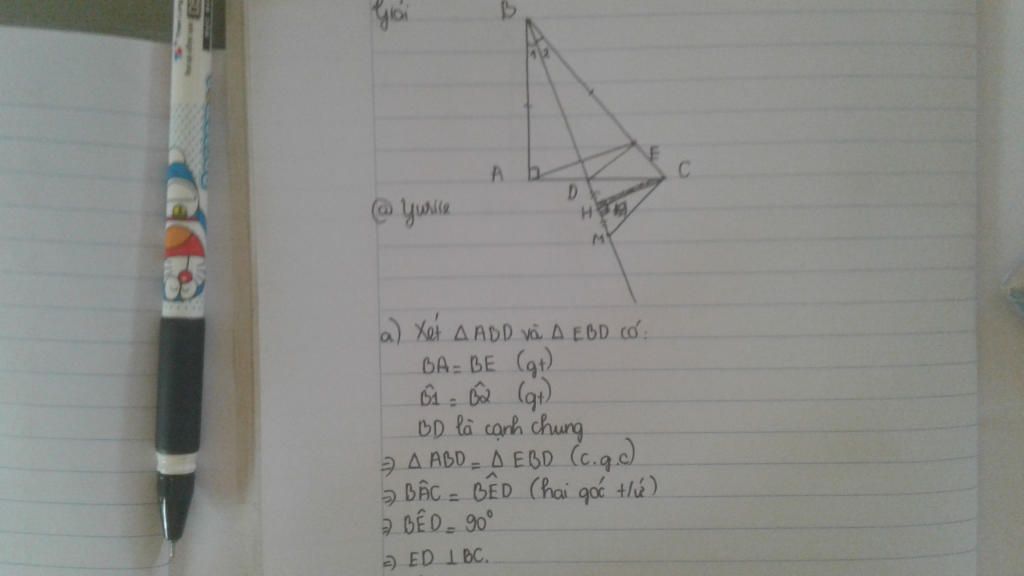 Giải
B
1 2
E
A
C
D
@ Yurie
H
M
a) Xét △ ABD và △ EBD có:
BA = BE (gt)
B̂1 = B̂2 (gt)
BD là cạnh chung
=) △ ABD = △ EBD (c.g.c)
=) BÂC = BÊD (hai góc t/ứ)
=) BÊD = 90°
=) ED ⊥ BC.